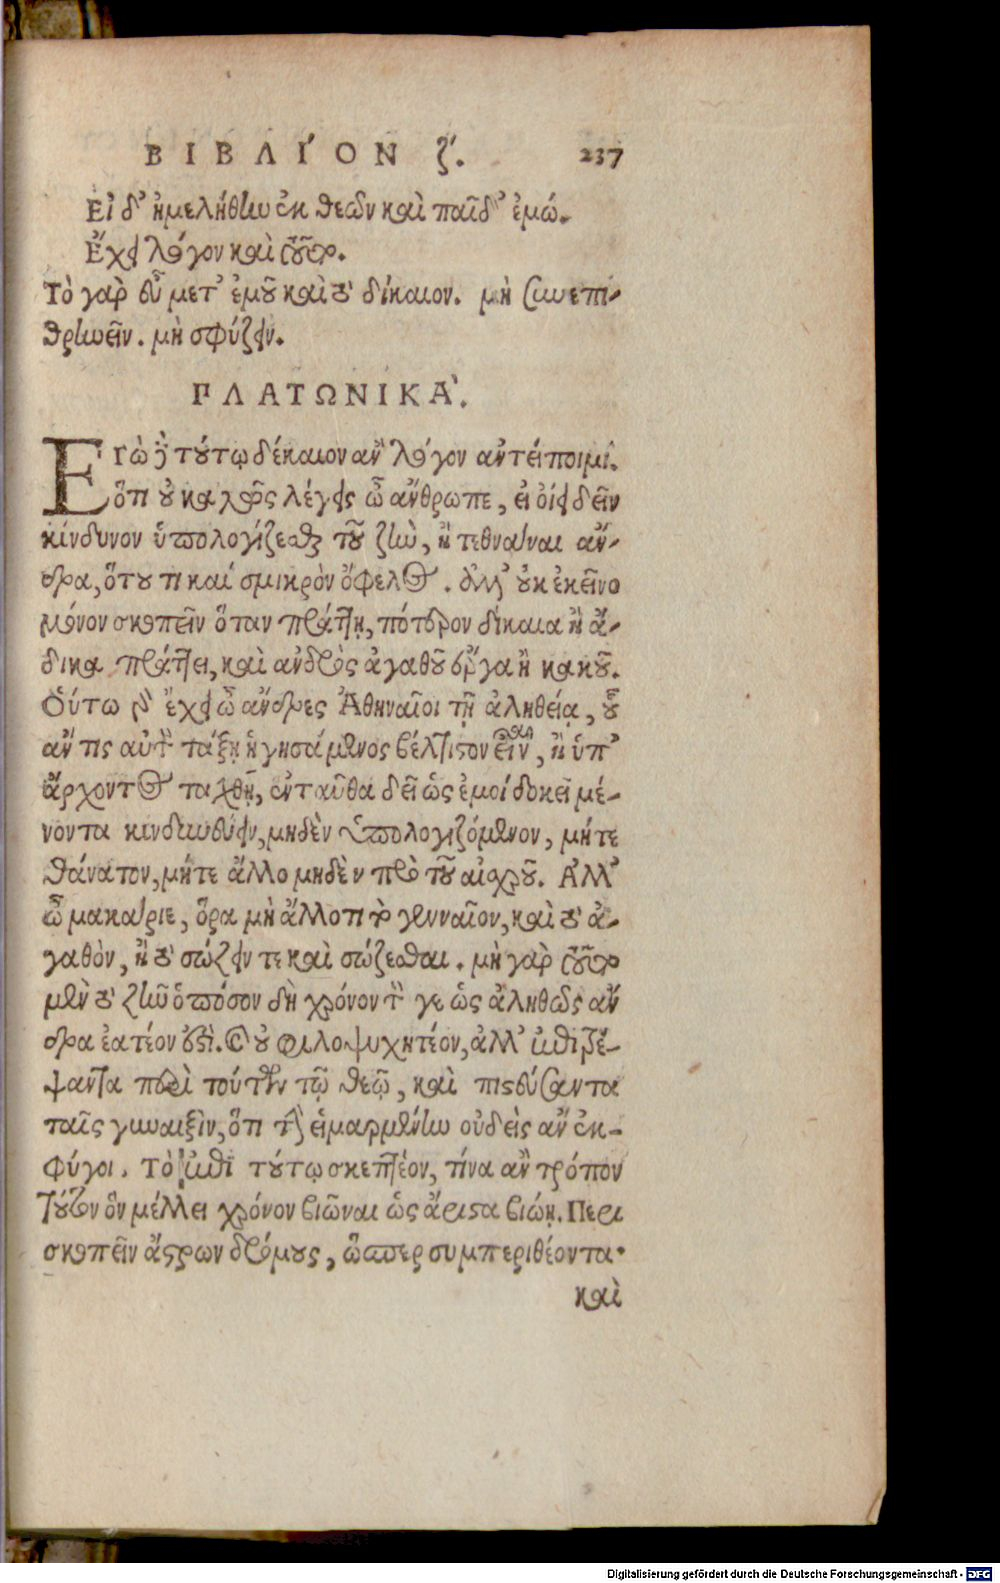 ΒΙΒΛΊΟΝ ζ΄. 237
Εἰ δ' ἠμελήθην ἐκ θεῶν καὶ παῖδ' ἐμώ.
Ἔχει λόγον καὶ τοῦτο.
Τὸ γὰρ εὖ μετ' ἐμοῦ καὶ τὸ δίκαιον. μὴ συνεπι-
θρηνεῖν. μὴ σφύζειν.
ΠΛΑΤΩΝΙΚᾺ.
ΕΓὼ δὲ τούτῳ δίκαιον ἂν λόγον ἀντείποιμι.
ὅτι οὐ καλῶς λέγεις ὦ ἄνθρωπε, εἰ οἴει δεῖν
κίνδυνον ὑπολογίζεσθαι τοῦ ζῆν, ἢ τεθνάναι ἄν-
δρα, ὅτου τι καί σμικρὸν ὄφελος. ἀλλ' οὐκ ἐκεῖνο
μόνον σκοπεῖν ὅταν πράττῃ, πότερον δίκαια ἢ ἄ-
δικα πράττει, καὶ ἀνδρὸς ἀγαθοῦ ἔργα ἢ κακοῦ.
Οὕτω γὰρ ἔχει ὦ ἄνδρες Ἀθηναῖοι τῇ ἀληθείᾳ, οὗ
ἄν τις αὑτὸν τάξῃ ἡγησάμενος βέλτιστον εἶναι, ἢ ὑπ'
ἄρχοντος ταχθῇ, ἐνταῦθα δεῖ ὡς ἐμοί δοκεῖ μέ-
νοντα κινδυνεύειν, μηδὲν ὑπολογιζόμενον, μήτε
θάνατον, μήτε ἄλλο μηδὲν πρὸ τοῦ αἰσχροῦ. Ἀλλ'
ὦ μακάριε, ὅρα μὴ ἄλλο τι τὸ γενναῖον, καὶ τὸ ἀ-
γαθὸν, ἢ τὸ σώζειν τε καὶ σώζεσθαι. μὴ γὰρ τοῦτο
μὲν τὸ ζῆν ὁπόσον δὴ χρόνον τόν γε ὡς ἀληθῶς ἄν
δρα ἐατέον ἐστὶ. καὶ οὐ φιλοψυχητέον, ἀλλ' ἐπιτρέ-
ψαντα περὶ τούτων τῷ θεῷ, καὶ πιστεύσαντα
ταῖς γυναιξὶν, ὅτι τὴν εἱμαρμένην οὐδεὶς ἂν ἐκ-
φύγοι. Τὸ ἐπὶ τούτῳ σκεπτέον, τίνα ἂν τρόπον
τοῦτον ὃν μέλλει χρόνον βιῶναι ὡς ἄριστα βιώῃ. Περι
σκοπεῖν ἄστρων δρόμους, ὥσπερ συμπεριθέοντα.
καὶ
Digitalisierung gefördert durch die Deutsche Forschungsgemeinschaft - DFG